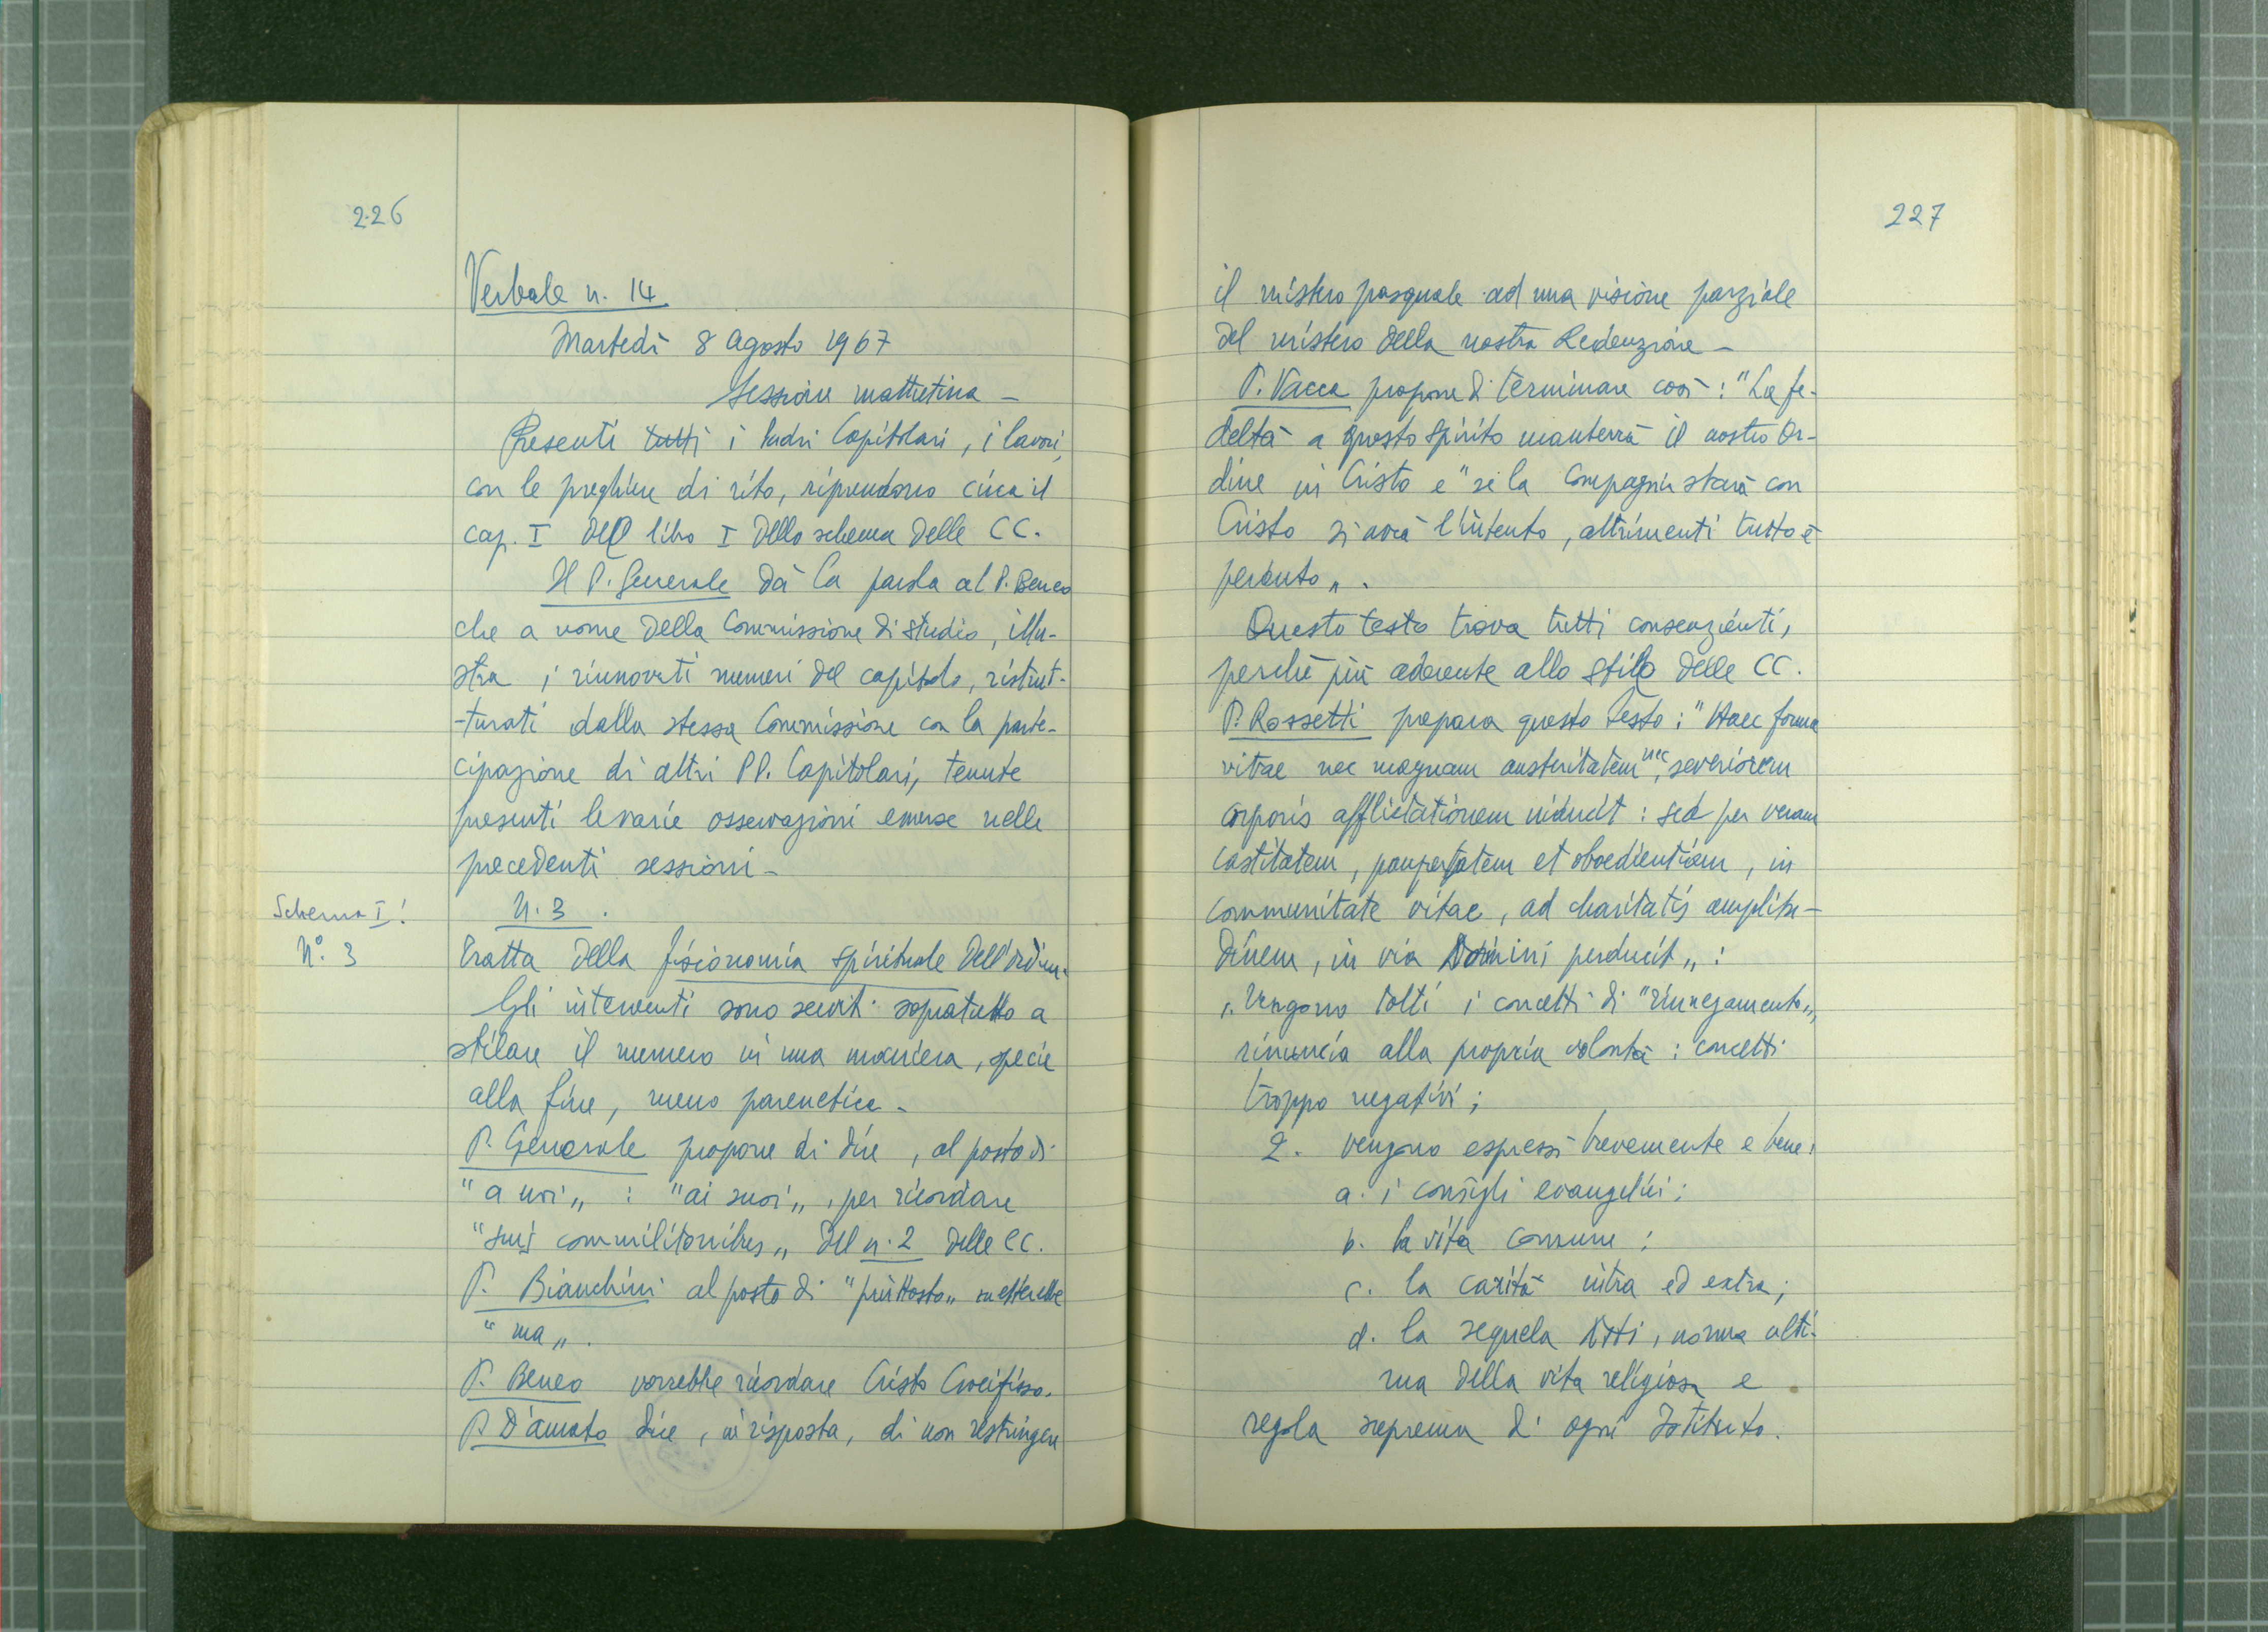 226
Verbale n. 14
Martedì 8 Agosto 1967
Sessione mattutina -
Presenti tutti i Padri Capitolari, i lavori,
con le preghiere di rito, riprendono circa il
cap. I del libro I dello schema delle CC.
Il P. Generale dà la parola al P. Beneo
che a nome della Commissione di studio, illu-
stra i rinnovati numeri del capitolo, ristrut-
-turati dalla stessa Commissione con la parte-
cipazione di altri PP. Capitolari, tenute
presenti le varie osservazioni emerse nelle
precedenti sessioni -
Schema I!
N° 3
N. 3.
Tratta della fisionomia spirituale dell'ordine.
Gli interventi sono serviti sopratutto a
stilare il numero in una maniera, specie
alla fine, meno parenetica -
P. Generale propone di dire, al posto di
"a noi„ : "ai suoi„, per ricordare
"suis commilitonibus„ del n. 2 delle CC.
P. Bianchini al posto di "piuttosto„ metterebbe
"ma„.
P. Beneo vorrebbe ricordare Cristo Crocifisso.
P. D'amato dice, in risposta, di non restringere
227
il mistero pasquale ad una visione parziale
del mistero della nostra Redenzione -
P. Vacca propone di terminare così: "La fe-
deltà a questo spirito manterrà il nostro Or-
dine in Cristo e "se la Compagnia starà con
Cristo si avrà l'intento, altrimenti tutto è
perduto„.
Questo testo trova tutti consenzienti,
perché più aderente allo stile delle CC.
P. Rossetti prepara questo testo: "Haec forma
vitae nec magnam austeritatem nec severiorem
corporis afflictationem inducit: sed per veram
castitatem, paupertatem et oboedientiam, in
communitate vitae, ad charitatis amplitu-
dinem, in via Domini perducit„ :
1. Vengono tolti i concetti di "rinnegamento„,
rinuncia alla propria volontà: concetti
troppo negativi;
2. vengono espressi brevemente e bene:
a. i consigli evangelici;
b. la vita comune;
c. la carità intra ed extra;
d. la sequela Xsti, norma ulti-
ma della vita religiosa e
regola suprema di ogni Istituto.